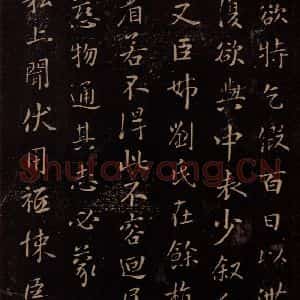 欲特乞假百日以
復欲與中表少叙
又臣姊劉氏在餘
若不得此不容迴
慈物通其志必蒙
上聞伏用祗悚臣
Shufawang.CN